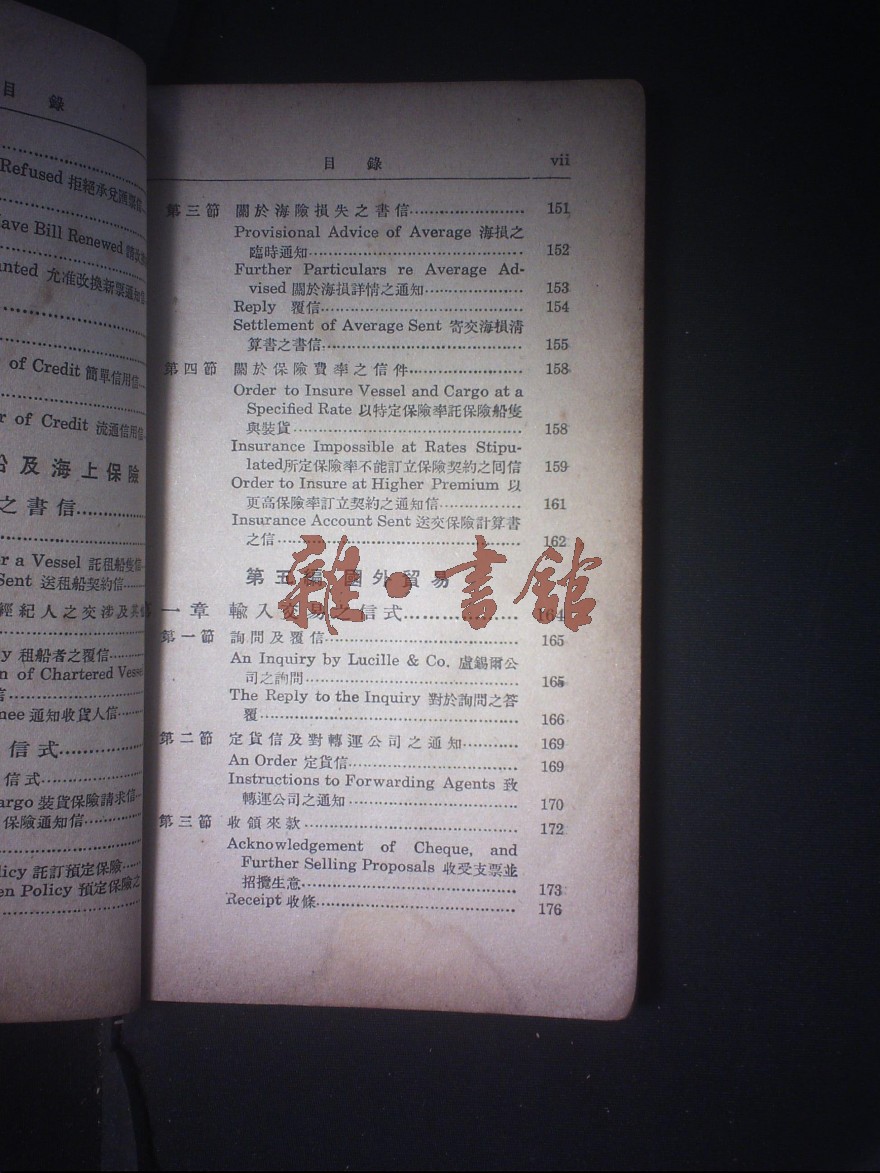 目 錄
Refused 拒絕承兌匯票信
ave Bill Renewed
anted 允准改換新票通知信
of Credit 簡單信用信
r of Credit 流通信用信
及海上保險
之書信
r a Vessel 託租船隻信
Sent 送租船契約信
經紀人之交涉及其他
y 租船者之覆信
n of Chartered Vessel
信
nee 通知收貨人信
信式
信式
argo 裝貨保險請求信
保險通知信
licy 託訂預定保險
en Policy 預定保險之
目 錄 vii
第三節 關於海險損失之書信 151
Provisional Advice of Average 海損之
臨時通知 152
Further Particulars re Average Ad-
vised 關於海損詳情之通知 153
Reply 覆信 154
Settlement of Average Sent 寄交海損清
算書之書信 155
第四節 關於保險費率之信件 158
Order to Insure Vessel and Cargo at a
Specified Rate 以特定保險率託保險船隻
與裝貨 158
Insurance Impossible at Rates Stipu-
lated所定保險率不能訂立保險契約之回信 159
Order to Insure at Higher Premium 以
更高保險率訂立契約之通知信 161
Insurance Account Sent 送交保險計算書
之信 162
第五編 國外貿易
雜·書館
第一章 輸入交易之信式 164
第一節 詢問及覆信 165
An Inquiry by Lucille & Co. 盧錫爾公
司之詢問 165
The Reply to the Inquiry 對於詢問之答
覆 166
第二節 定貨信及對轉運公司之通知 169
An Order 定貨信 169
Instructions to Forwarding Agents 致
轉運公司之通知 170
第三節 收領來款 172
Acknowledgement of Cheque, and
Further Selling Proposals 收受支票並
招攬生意 173
Receipt 收條 176